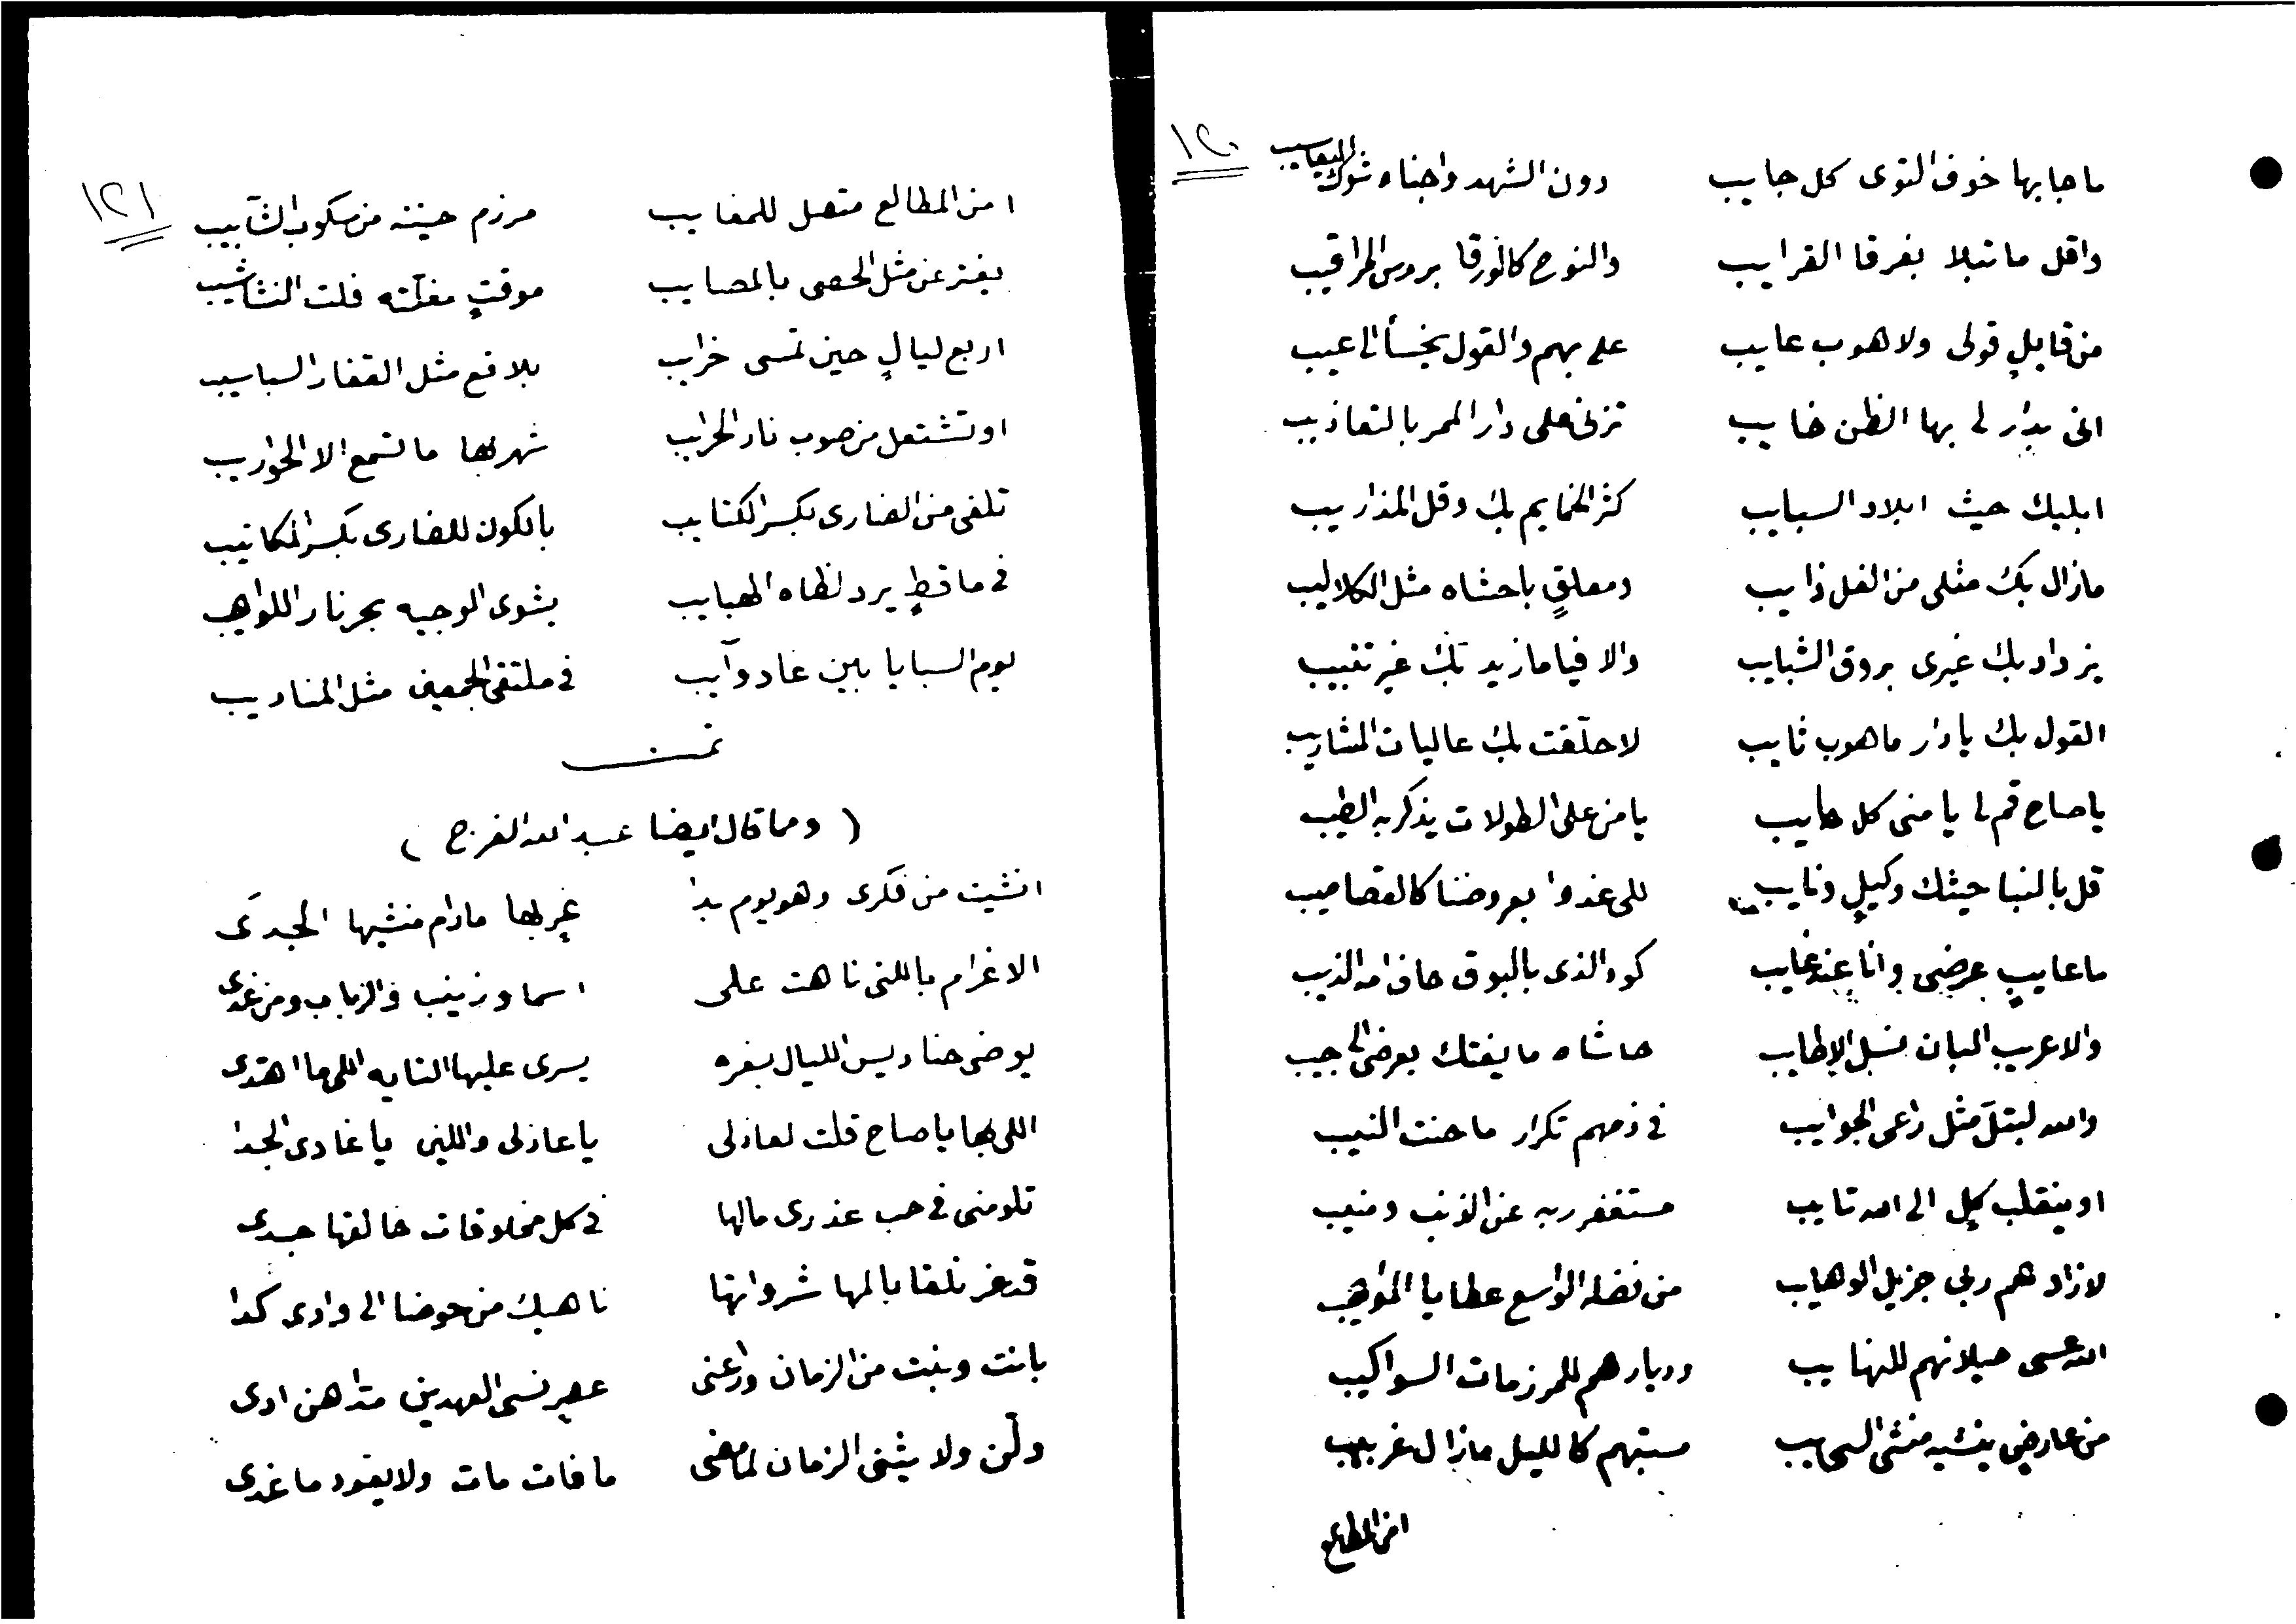 ١٢٠
ما جا بها خوف التوى كل جايب دون الشهد واجناه شوك اليعاسيب
واقل ما تبلا بفرقا القرايب والنوح كالورقا بروس المراقيب
من قايلٍ قولى ولا هوب عايب على بهم والقول يخسأ الى عيب
انى بدار لى بها الظن خايب تزنى على دار الممر بالتعاذيب
ابليك حيث ابلاد السبايب كثر الخمايم بك وقل المذاريب
مازال بك مثلى من الغل ذايب ومعلقٍ باحشاه مثل الكلاليب
يزداد بك غيرى بروق الشبايب والا فيا مازيد بك غير تتبيب
القول بك يا دار ما هوب ثايب لا حلّقت بك عاليات المشاريب
يا صاح قم لى يا منى كل هايب يا من على الطولات يذكر به الطيب
قل بالنبا حيثك وكيلٍ ونايب للى غدوا بعروضنا كالقصاصيب
ما عايبٍ عرضى وانا عنه غايب كود الذى بالبوق خاف امه الذيب
والا عريب البان نسل الاطايب حاشاه ما يفتك بعرضٍ الى جيب
والله لبتلّ مثل راعى الجوايب فى ذمهم تكرار ما حنت النيب
او ينقلب كلٍ الى الله تايب مستغفر ربه عن الذنب ومنيب
لازادهم ربى جزيل الوهايب من فضله الواسع عطايا المواهيب
الله عسى حيلانهم للنهايب وديارهم للمرزمات السواكيب
من عارضٍ ينشيه منشى السحايب مستبهم كالليل مازال غربيب
امن المطالع
١٢١
امن المطالع متصل للمغايب مرزم حنينه من سكوب الشآبيب
يفتر عن مثل الحصى بالمصايب موقتٍ مفلته فلت النشاشيب
اربع ليالٍ حين تمسى خرايب بلاقع مثل القفار السباسيب
او تشتعل من صوب نار الحرايب شهر بها ما تسمع الا الحواريب
تلفى من الضارى بكسر الكتايب بالكون للضارى بكسر المكاتيب
فى ماقطٍ يرد لظاه الهبايب يشوى الوجيه بحر نار اللواهيب
يوم السبايا بين غاد وآيب فى ملتقى الجمعين مثل المناديب
تمت
( ومما قال ايضا عبد الله الفرج )
انشيت من فكرى وهو يوم بدا غرٍ بها مادام منشيها الجدى
الا غرام باللتى تاهت على اسما وزينب والرباب ومن غدى
يوضى حناديس الليال بغره يسرى عليها التايه اللى ما اهتدى
اللى بها يا صاح قلت لعاذلى يا عاذلى واللين يا غادى الجدا
تلومنى فى حب عذرى مالها فى كل مخلوقات خالقها جدى
قدعز تلقا بالمها شرواتها ناهيك من حوضا الى وادى كدا
بانت وبنت من الزمان وراعنى عصرٍ نسى العهدين متداهن ادى
ولّن ولا يثنى الزمان لما مضى ما فات مات ولا يعود ما غدى